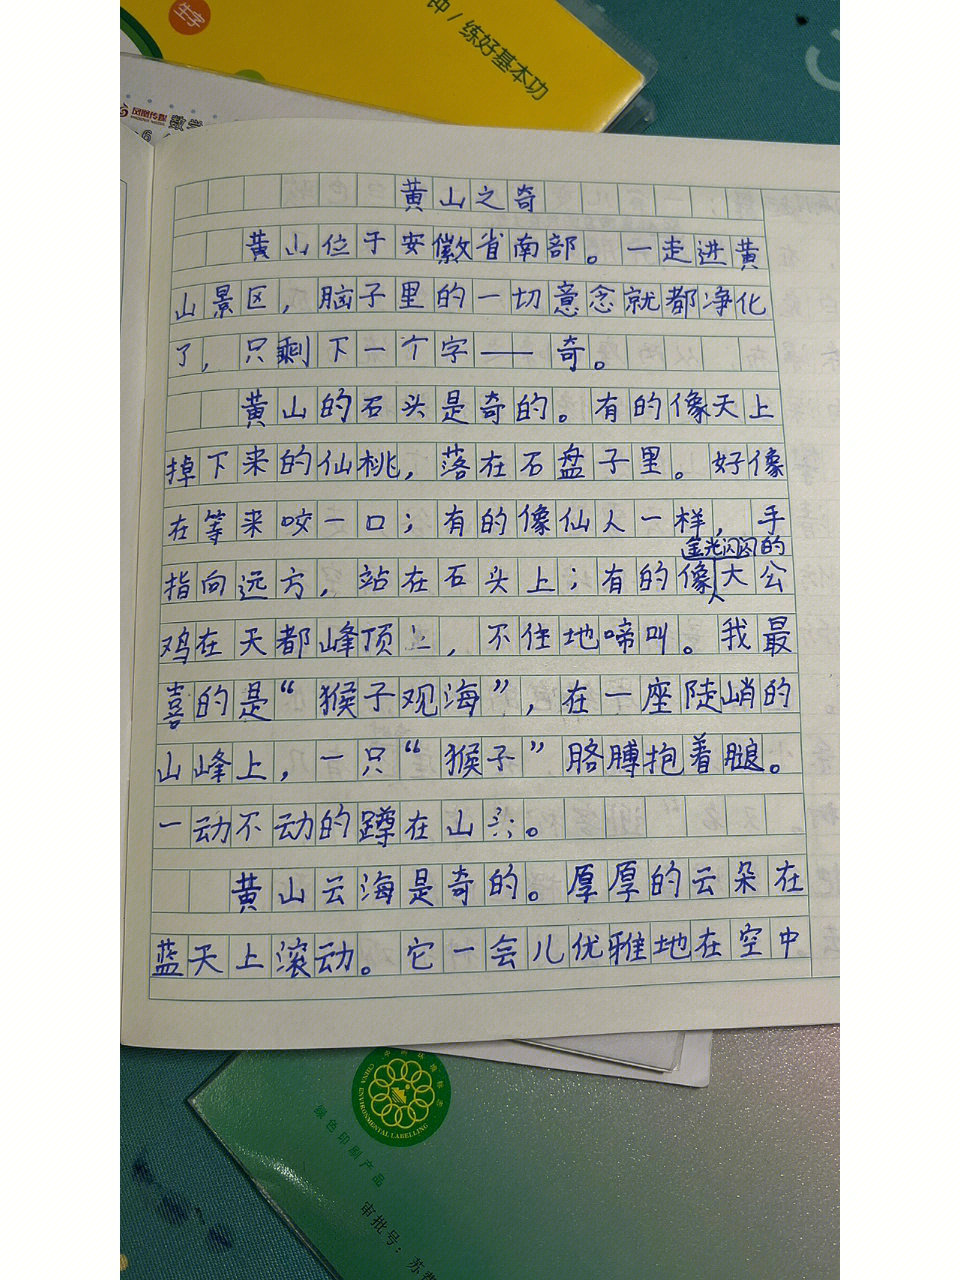 生字
钟/练好基本功
凤凰传媒 数学
6
黄山之奇
黄山位于安徽省南部。一走进黄
山景区，脑子里的一切意念就都净化
了，只剩下一个字——奇。
黄山的石头是奇的。有的像天上
掉下来的仙桃，落在石盘子里。好像
在等来咬一口；有的像仙人一样，手
金光闪闪的
指向远方，站在石头上；有的像大公
鸡在天都峰顶上，不住地啼叫。我最
喜的是“猴子观海”，在一座陡峭的
山峰上，一只“猴子”胳膊抱着腿。
一动不动的蹲在山头。
黄山云海是奇的。厚厚的云朵在
蓝天上滚动。它一会儿优雅地在空中
中国环境标志
CHINA ENVIRONMENTAL LABELLING
绿色印刷产品
审批号：苏